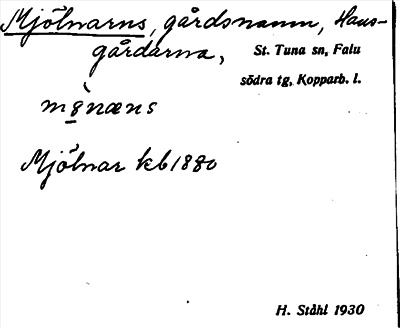 Mjölnarns, gårdsnamn, Haus-
gårdarna, St. Tuna sn, Falu
södra tg, Kopparb. l.
Mjölnar kb 1880
H. Ståhl 1930